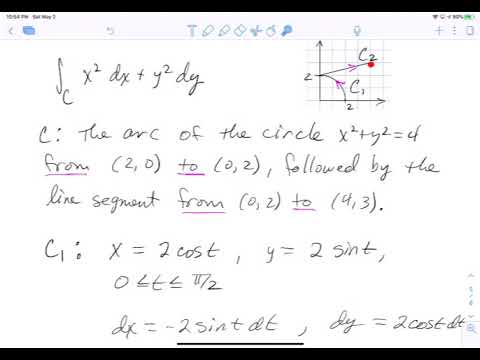 10:54 PM Sat May 2
90%
∫_C x² dx + y² dy
C₂
C₁
2
2
C: The arc of the circle x²+y²=4
from (2,0) to (0,2), followed by the
line segment from (0,2) to (4,3).
C₁: x = 2cost, y = 2 sint,
0 ≤ t ≤ π/2
dx = -2sintdt, dy = 2costdt